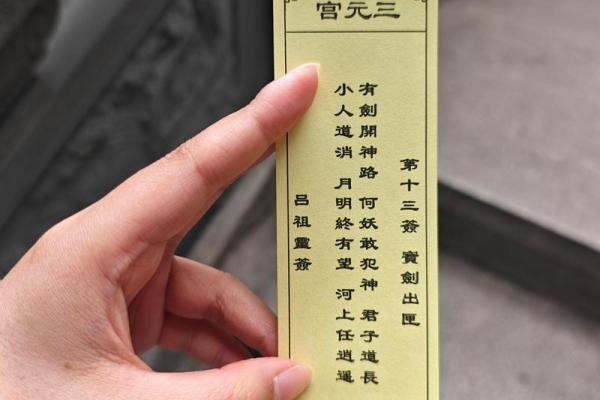 三元宮
第十三簽 寶劍出匣
有劍開神路 何妖敢犯神 君子道長
小人道消 月明終有望 河上任逍遙
呂祖靈簽